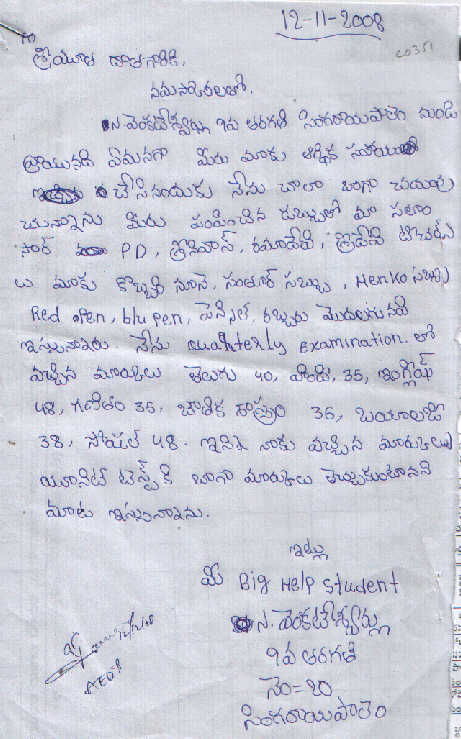 12-11-2008
To
CO351
శ్రీయుత దాతగారికి,
నమస్కారములతో.
N. వెంకటేశ్వర్లు 9వ తరగతి సింగరాయపాలెం నుండి
వ్రాయునది ఏమనగా మీరు మాకు ఆర్థిక సహాయ
చేసినందుకు నేను చాలా బాగా చదువు
చున్నాను మీరు పంపించిన డబ్బుతో మా సలాం
సార్ PD, శ్రీనివాస్, రమాదేవి, శ్రీదేవి టీచర్లు
లు మాకు కొబ్బరి నూనె, సంతూర్ సబ్బు, Henko సబ్బు
Red Pen, blu pen, పెన్సిల్, రబ్బరు మొదలగునవి
ఇస్తున్నారు నేను quahterly examination. లో
వచ్చిన మార్కులు తెలుగు 40, హిందీ, 35, ఇంగ్లీష్
48, గణితం 35, భౌతిక శాస్త్రం 36, బయాలజీ
38, సోషల్ 48. ఇవి నాకు వచ్చిన మార్కులు
యూనిట్ టెస్ట్ కి బాగా మార్కులు తెచ్చుకుంటానని
మాట ఇస్తున్నాను.
ఇట్లు
మీ Big Help Student
N. వెంకటేశ్వర్లు
9వ తరగతి
నెం=20
సింగరాయపాలెం